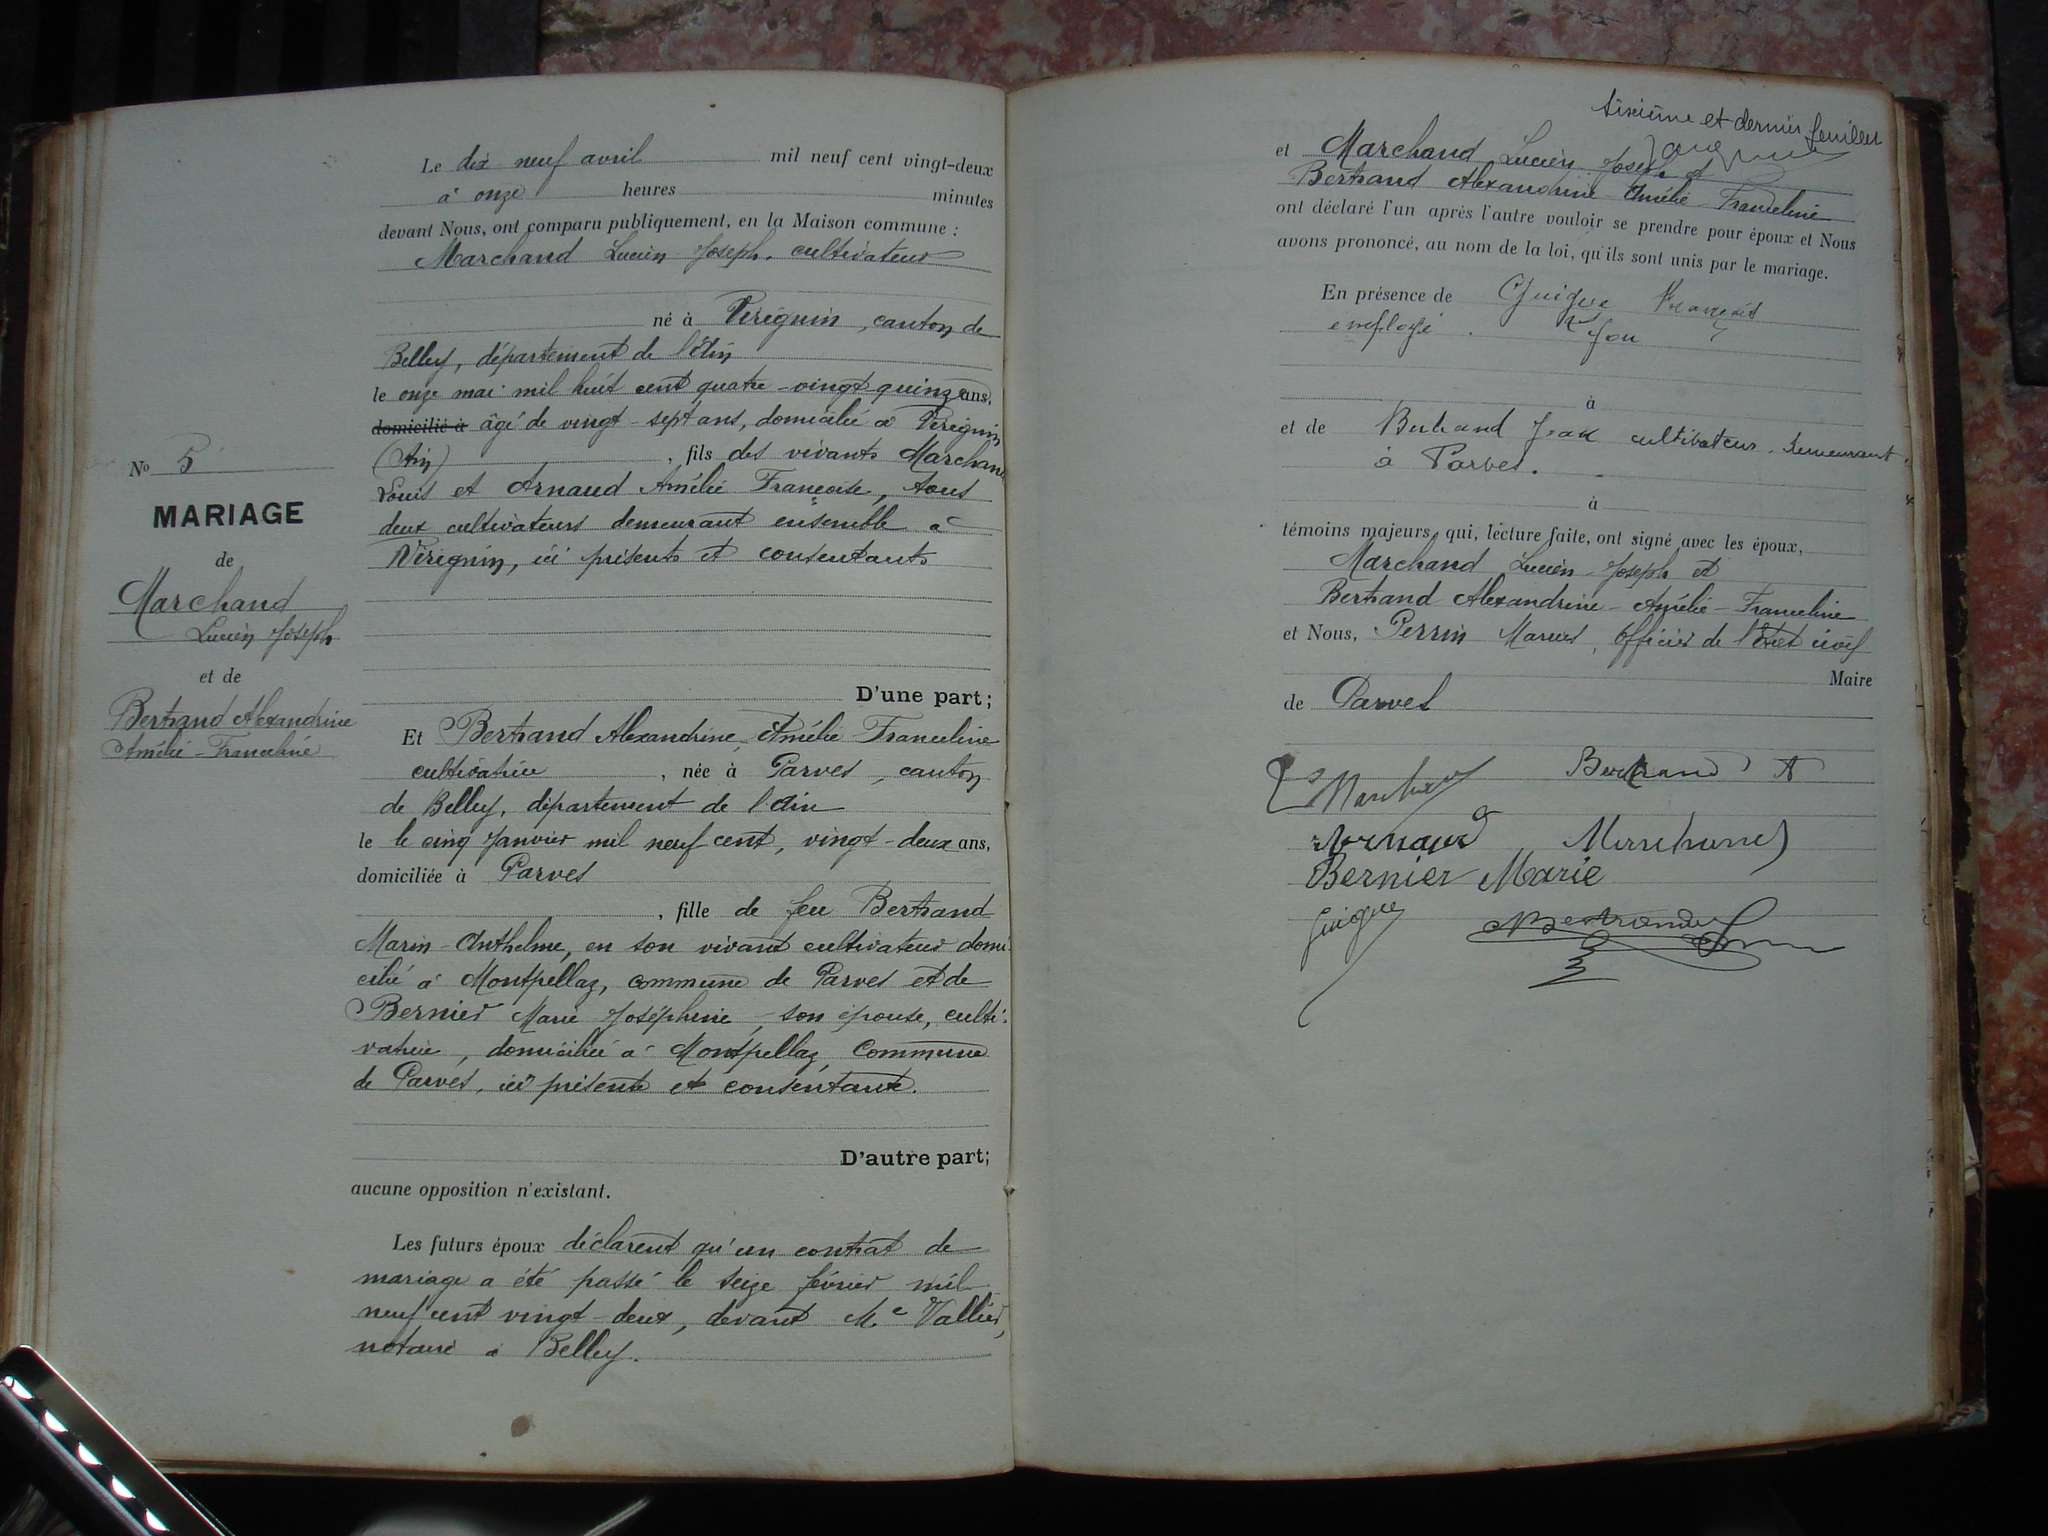 Le dix neuf avril mil neuf cent vingt-deux
à onze heures minutes
devant Nous, ont comparu publiquement, en la Maison commune :
Marchand Lucien Joseph. cultivateur
né à Virignin, canton de
Belley, département de l'Ain
le onze mai mil huit cent quatre-vingt-quinze ans,
domicilié à âgé de vingt-sept ans, domicilié à Virignin
(Ain) , fils des vivants Marchand
Louis et Arnaud Amélie Françoise, tous
deux cultivateurs demeurant ensemble à
Virignin, ici présents et consentants
No 5
MARIAGE
de
Marchand
Lucien Joseph
et de
Bertrand Alexandrine
Amélie-Franceline
D'une part;
Et Bertrand Alexandrine, Amélie Franceline
cultivatrice , née à Parves, canton
de Belley, département de l'Ain
le le cinq Janvier mil neuf cent, vingt-deux ans,
domiciliée à Parves
, fille de feu Bertrand
Marin-Anthelme, en son vivant cultivateur domi-
cilié à Montpellaz, commune de Parves et de
Bernier Marie Joséphine, son épouse, culti-
vatrice, domiciliée à Montpellaz, Commune
de Parves, ici présente et consentante.
D'autre part;
aucune opposition n'existant.
Les futurs époux déclarent qu'un contrat de
mariage a été passé le seize février mil
neuf cent vingt-deux, devant Me Vallier,
notaire à Belley.
sixième et dernier feuillet
et Marchand Lucien Joseph et
Bertrand Alexandrine-Amélie-Franceline
ont déclaré l'un après l'autre vouloir se prendre pour époux et Nous
avons prononcé, au nom de la loi, qu'ils sont unis par le mariage.
En présence de Guigue François
employé
à
et de Bertrand Jean cultivateur. demeurant
à Parves.
à
témoins majeurs, qui, lecture faite, ont signé avec les époux,
Marchand Lucien-Joseph et
Bertrand Alexandrine-Amélie-Franceline
et Nous, Perrin Marius, Officier de l'Etat civil
Maire
de Parves
Marchand Bertrand A
Arnaud Marchand
Bernier Marie
Guigue Bertrand